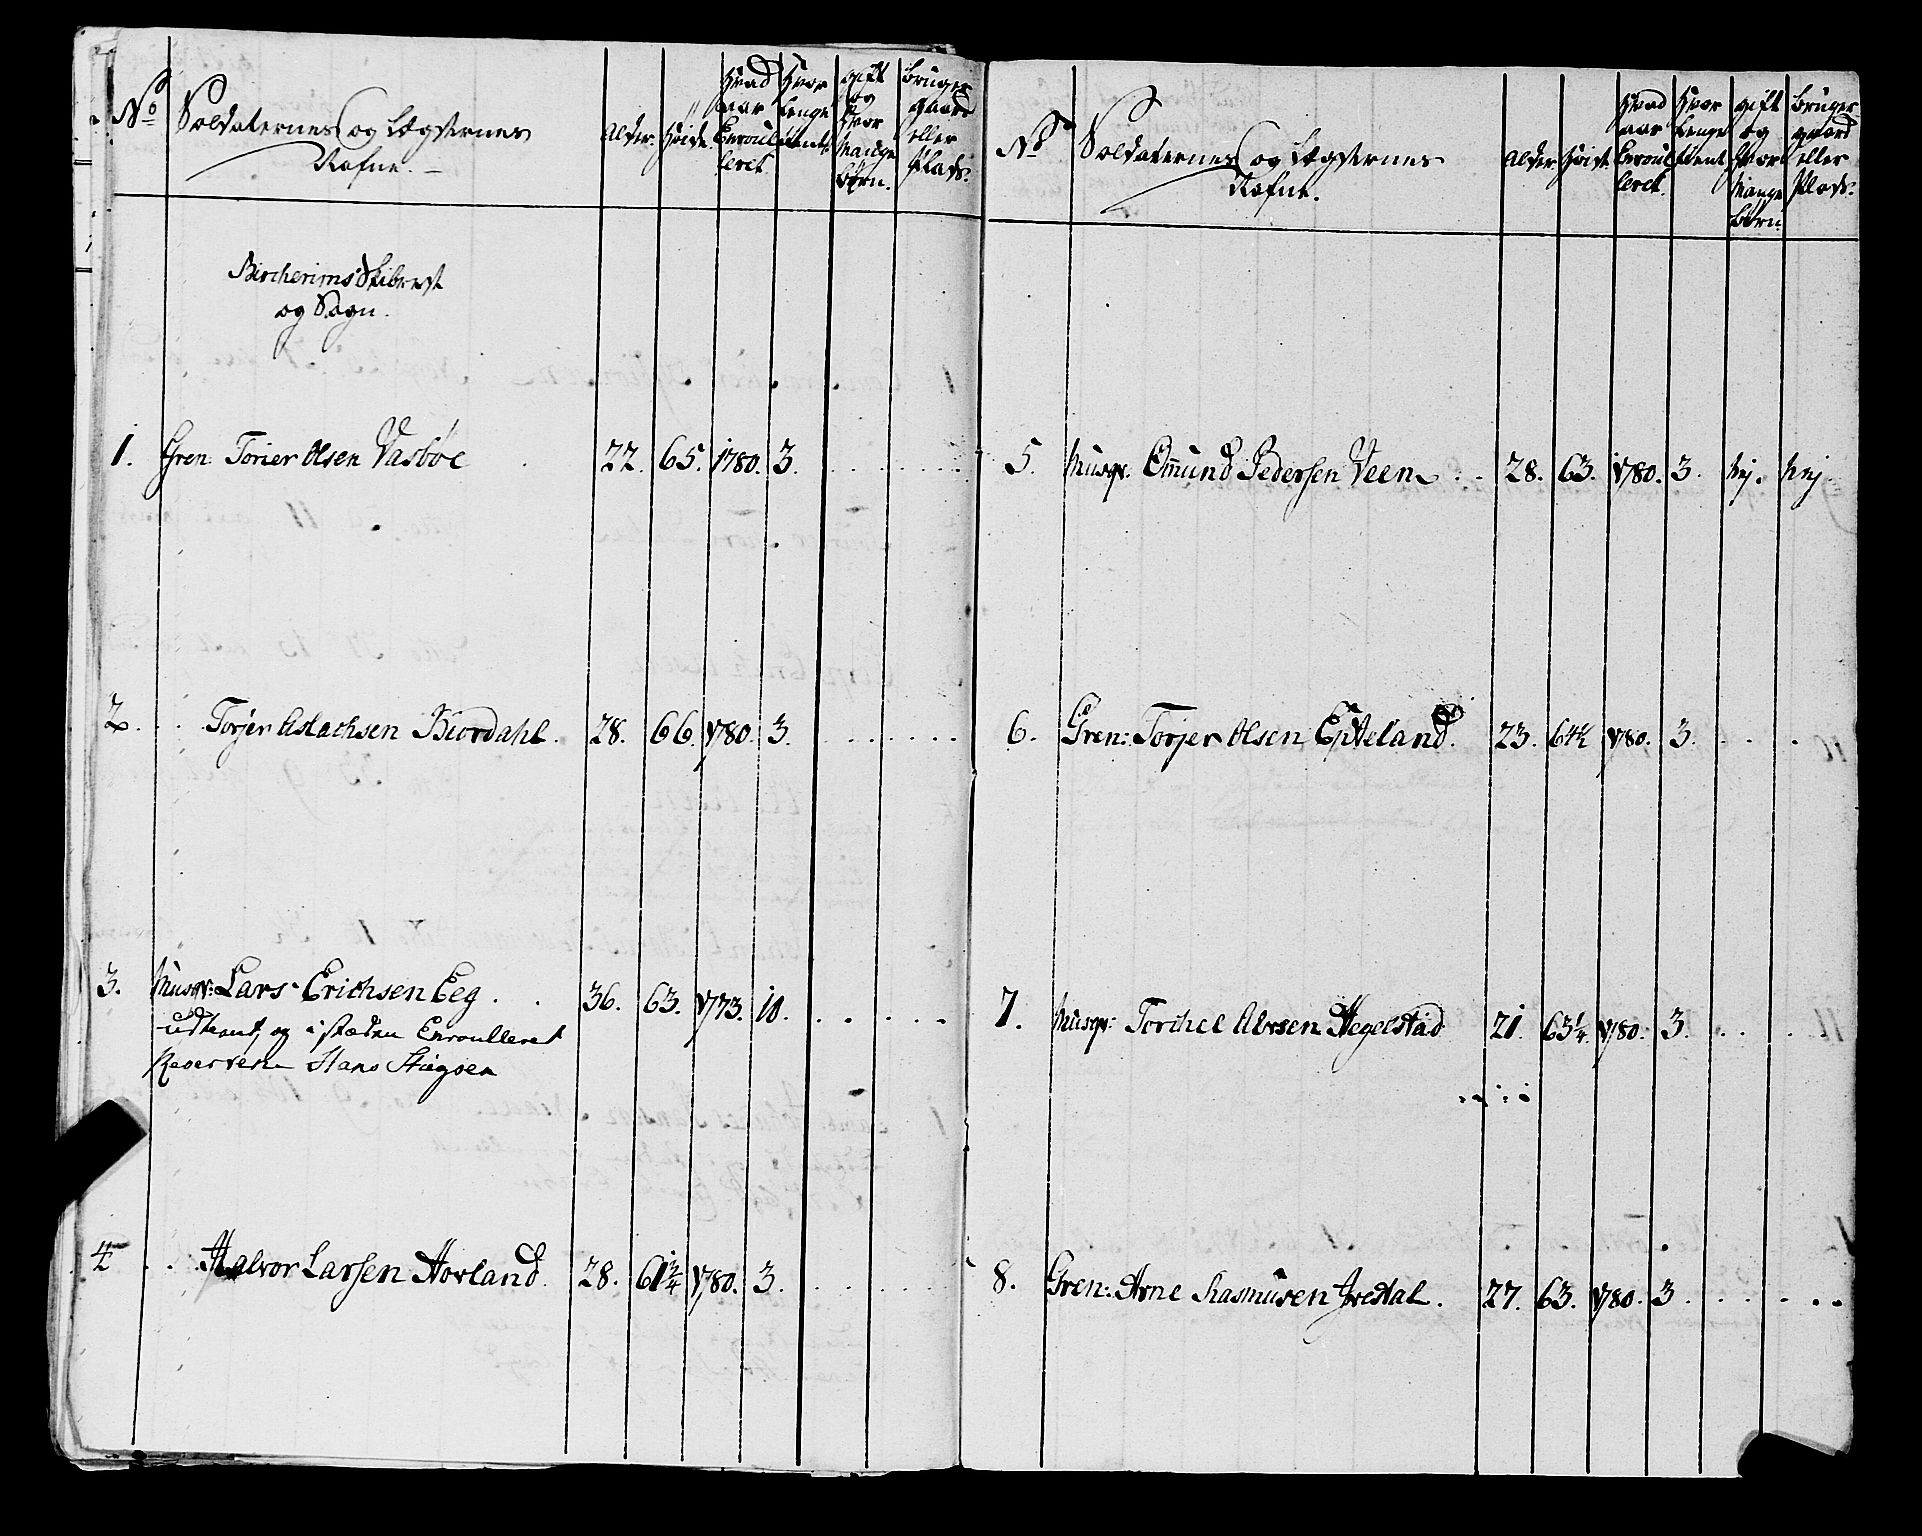 No Soldaternes og Lægternes Nafne. Alder. Høide. Hvad aar Enroulleret. Hvor lenge tient. gift og hvor mange børn. bruger gaard eller Plads.
Bircherims Skibrest
og Sogn.
1. Gren: Torier Olsen Vasbøe 22. 65. 1780. 3.
2. Torjer Aslachsen Biordahl. 28. 66. 1780. 3.
3. Musqr: Lars Erichsen Eeg. 36. 63. 1773. 10.
udtient, og i stæden Enroulleret
Reserven Hans
4 Halvor Larsen Hovland. 28. 61 3/4 1780. 3.
No Soldaternes og Lægternes Nafne. Alder Høide. Hvad aar Enroulleret. Hvor lenge tient gift og hvor mange børn bruger gaard eller Plads.
5. Musqr. Omund Pedersen Veen 28. 63. 1780. 3. Nej. Nej
6. Gren: Torjer Olsen Eigeland. 23. 64 1/2 1780. 3.
7. Musqr: Torchel Hegelstad 21. 63 1/4 1780. 3.
8. Gren: Arne Rasmusen Jredal. 27. 63. 1780. 3